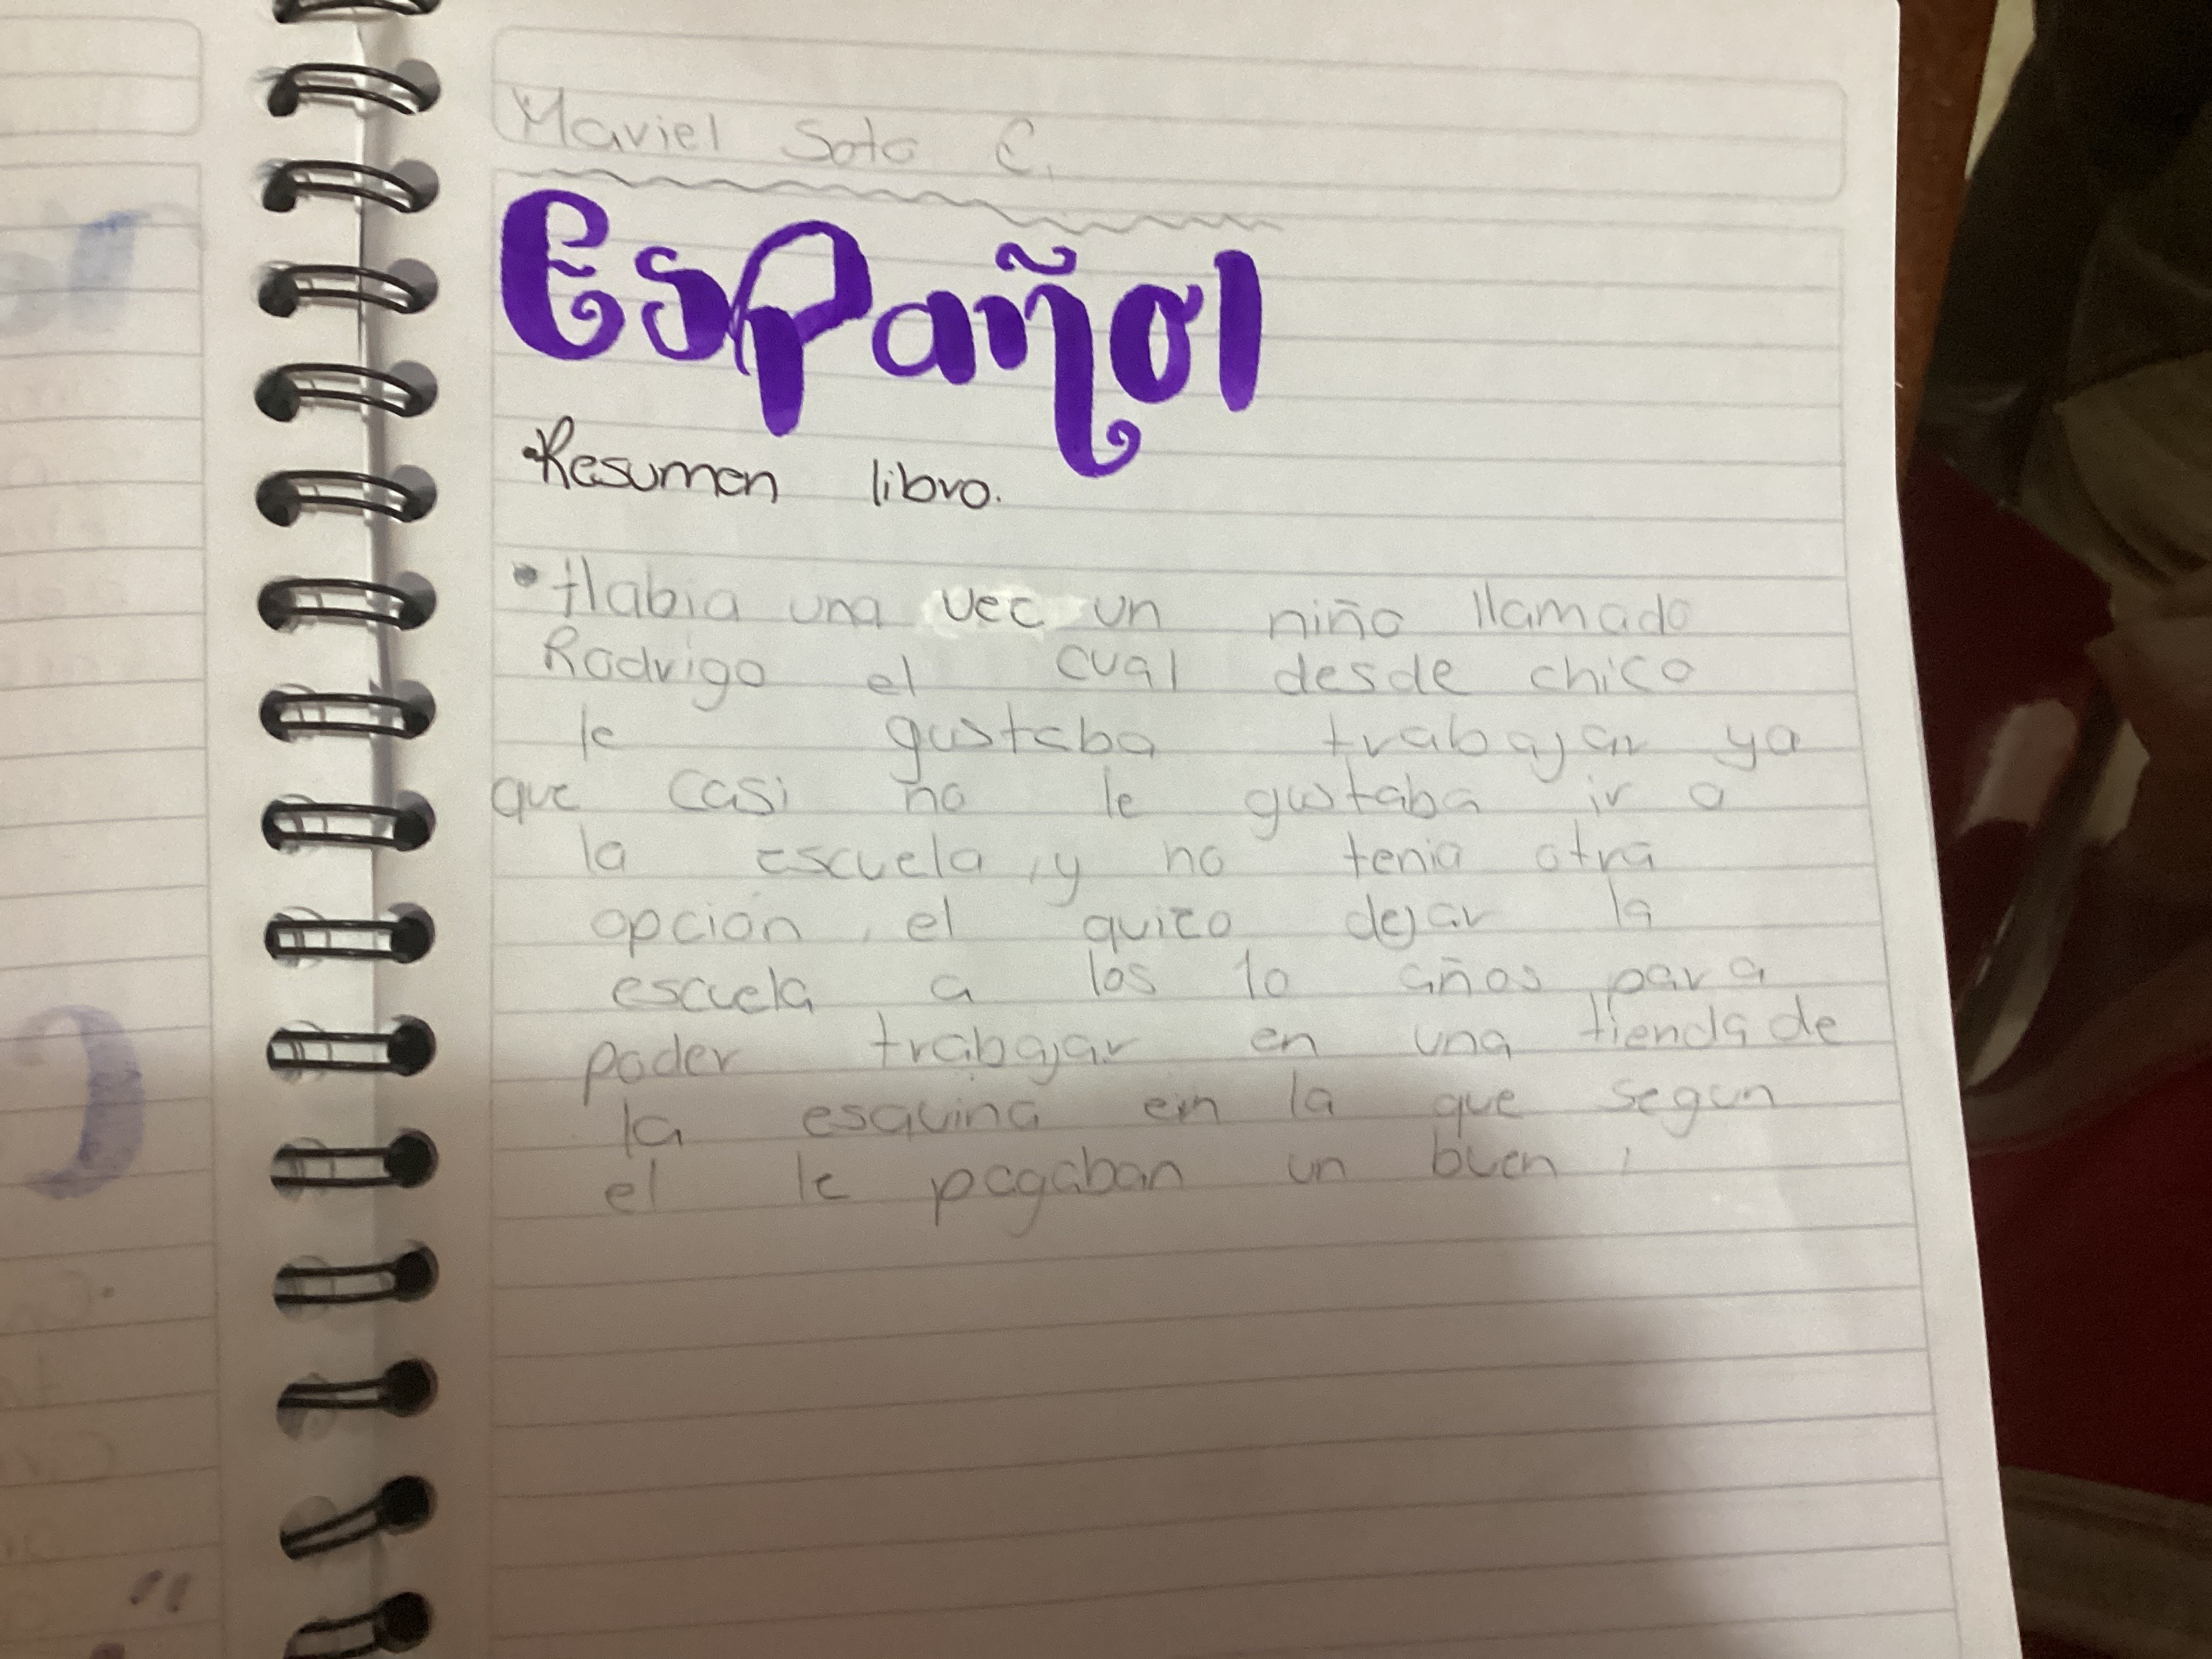 Maviel Soto C.
Español
• Resumen libro.
• Habia una vec un niño llamado
Rodrigo el cual desde chico
le gustaba trabajar ya
que casi no le gustaba ir a
la escuela, y no tenia otra
opcion, el quizo dejar la
escuela a los 10 años para
poder trabajar en una tienda de
la esquina en la que segun
el le pagaban un buen